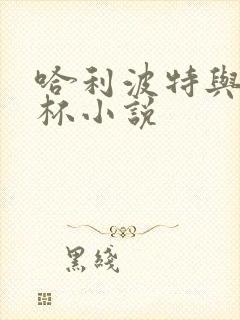 哈利波特與
杯小說
黑綫